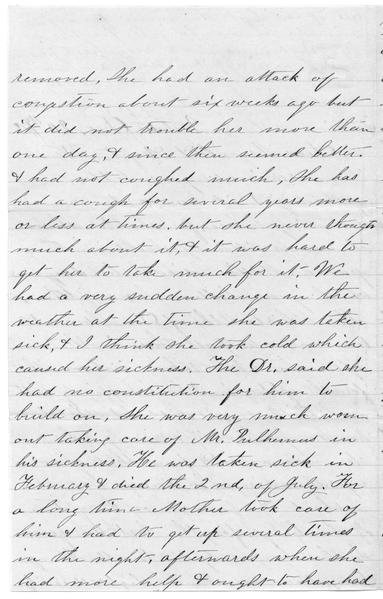 removed. She had an attack of
congestion about six weeks ago but
it did not trouble her more than
one day, & since then seemed better.
& had not coughed much, She has
had a cough for several years more
or less at times, but she never though
much about it, & it was hard to
get her to take much for it. We
had a very sudden change in the
weather at the time she was taken
sick, & I think she took cold which
caused her sickness. The Dr. said she
had no constitution for him to
build on, She was very much worn
out taking care of Mr. Pulhemus in
his sickness. He was taken sick in
February & died the 2nd, of July. For
a long time Mother took care of
him & had to get up several times
in the night, afterwards when she
had more help & ought to have had